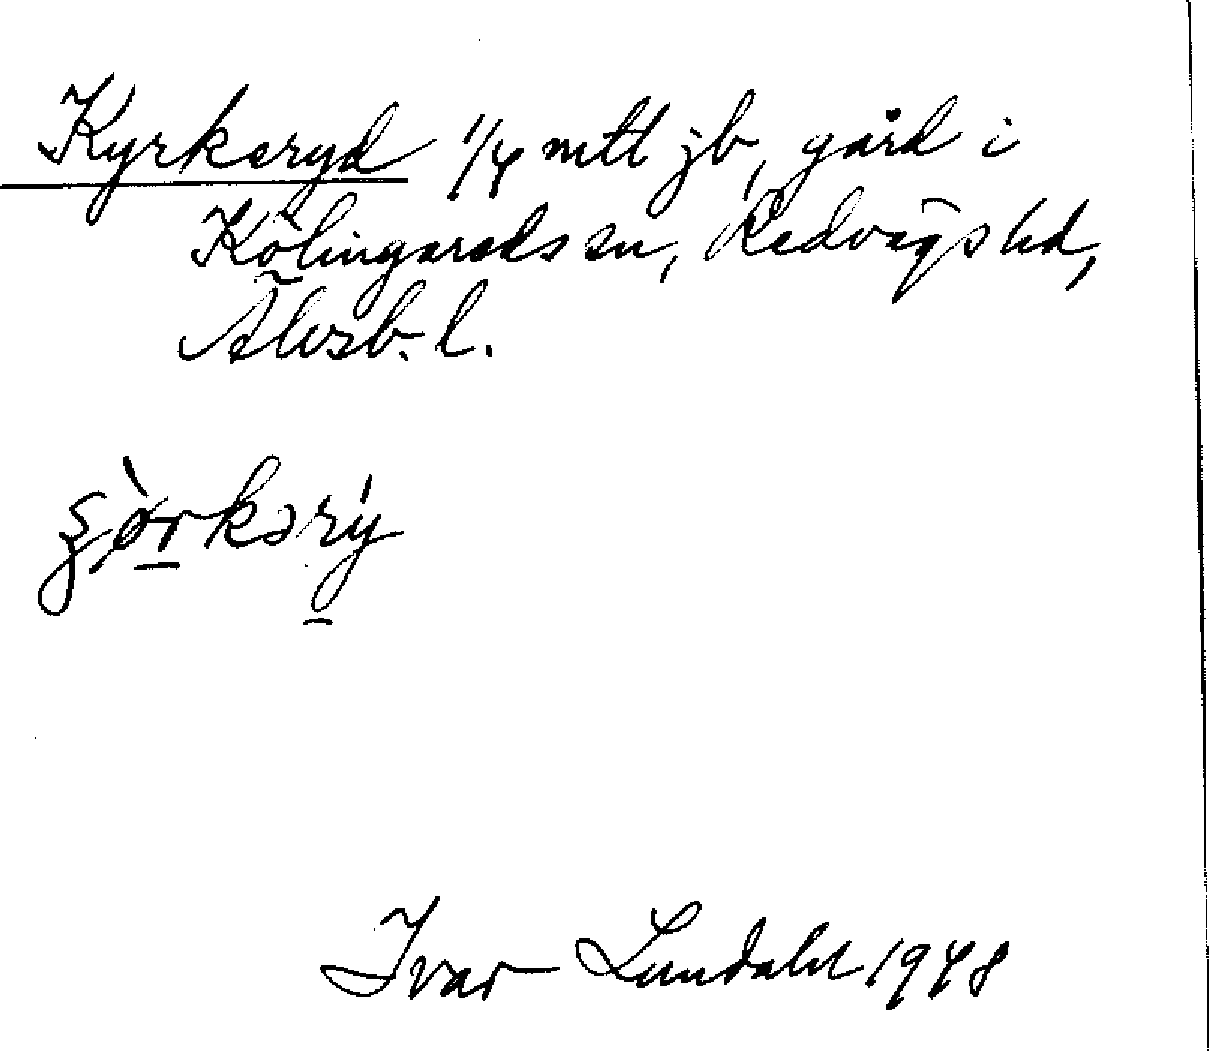 Kyrkeryd 1/4 mtl jb, gård i
Kölingareds sn, Redvägs hd,
Älvsb. l.
Ivar Lundahl 1948